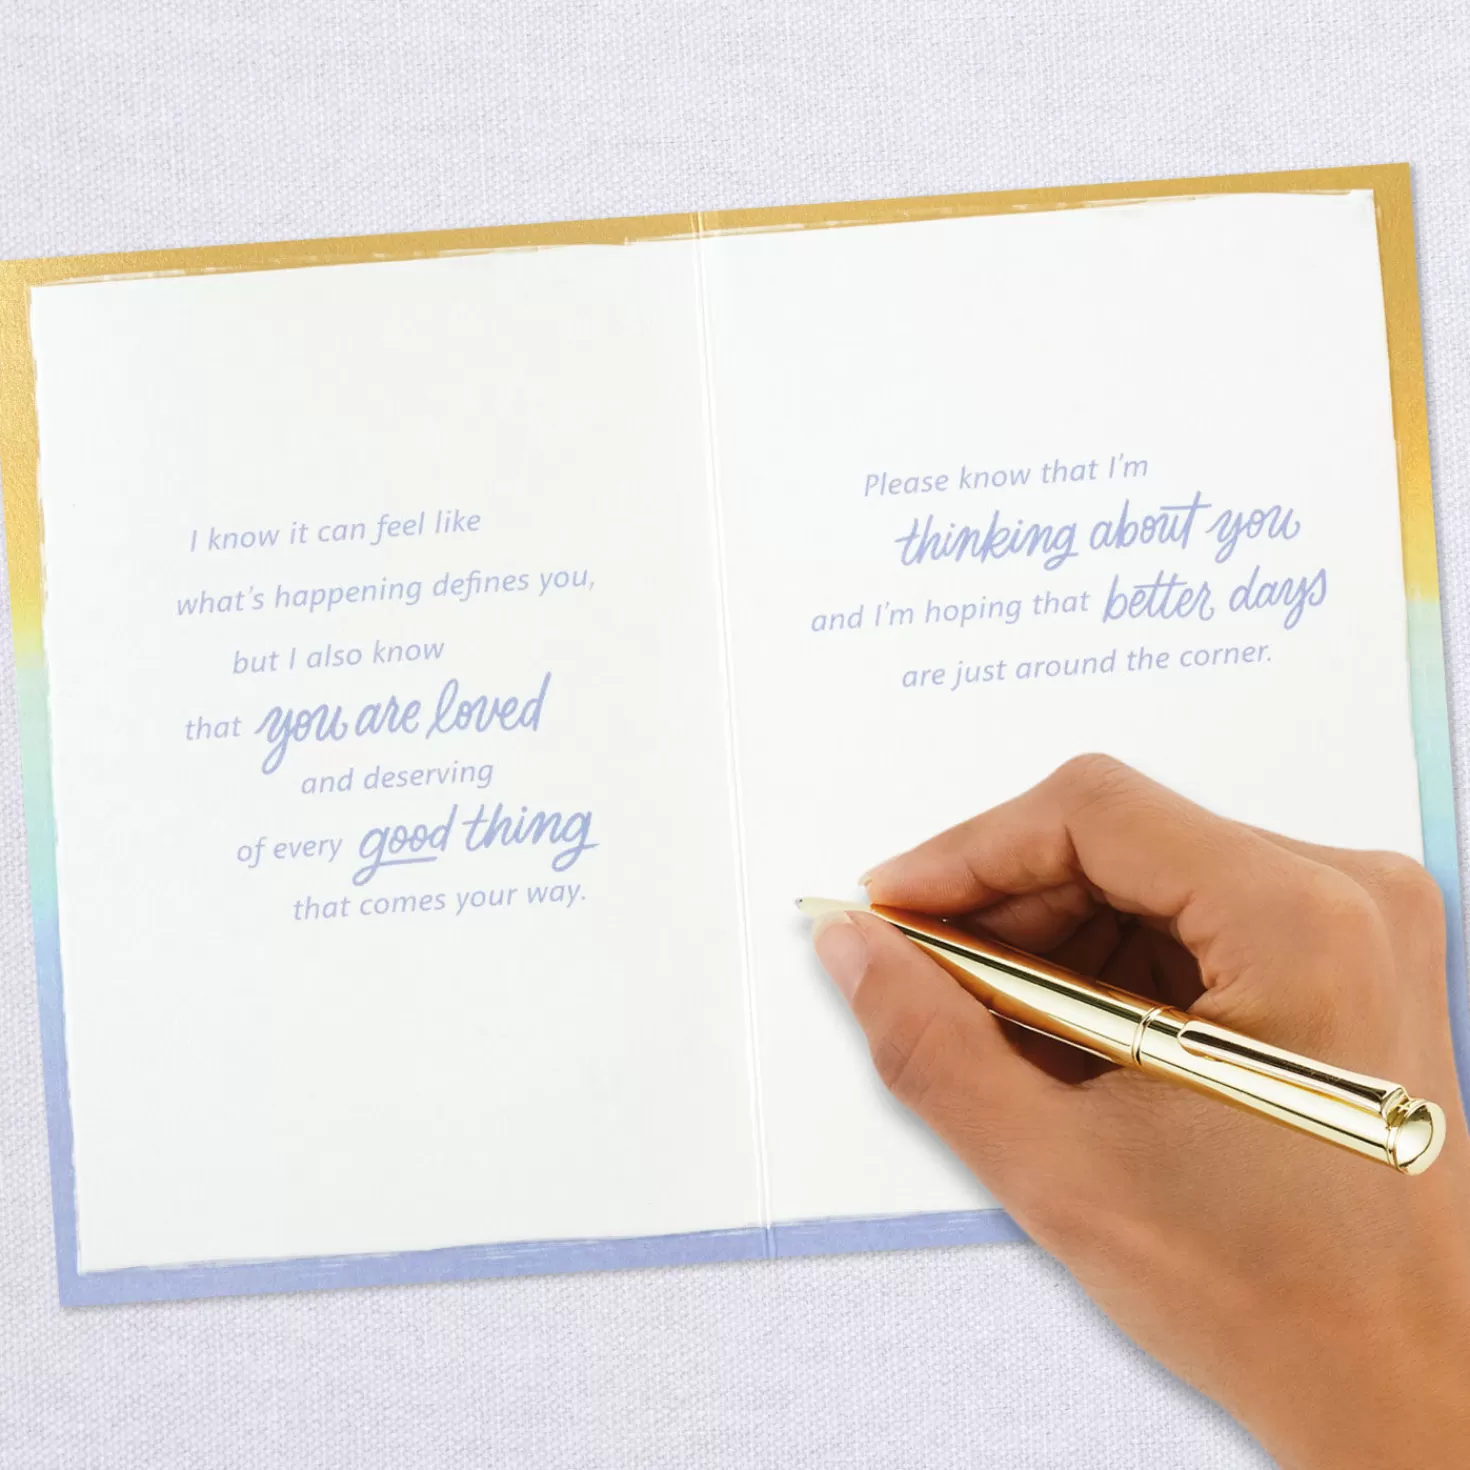 I know it can feel like
what's happening defines you,
but I also know
that you are loved
and deserving
of every good thing
that comes your way.
Please know that I'm
thinking about you
and I'm hoping that better days
are just around the corner.